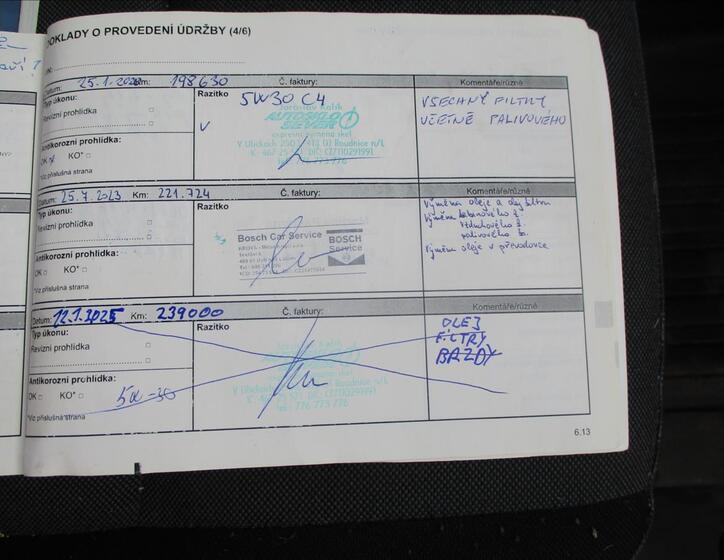 DOKLADY O PROVEDENÍ ÚDRŽBY (4/6)
Datum: 25.1. Km: 198630 Č. faktury: Komentáře/různé
Typ úkonu:
Revizní prohlídka
Antikorozní prohlídka:
OK KO*
*Viz příslušná strana
Razítko 5W30 C4
V
Jaroslav Kalík
AUTOSKLO
SEVER
expresní výměna skel
413 01 Roudnice n/L
DIČ: CZ7110291991
776 773 776
VŠECHNY FILTRY
VČETNĚ PALIVOVÉHO
Datum: 25.7.2023 Km: 221.724 Č. faktury: Komentáře/různé
Typ úkonu:
Revizní prohlídka
Antikorozní prohlídka:
OK KO*
*Viz příslušná strana
Razítko
Bosch Car Service
BOSCH
Service
Výměna oleje a olej filtru
Výměna kabinového f.
vzduchového f.
palivového f.
Výměna oleje v převodovce
Datum: 12.1.2025 Km: 239000 Č. faktury: Komentáře/různé
Typ úkonu:
Revizní prohlídka
Antikorozní prohlídka:
OK KO*
*Viz příslušná strana
5W-30
Razítko
Tel.: 776 773 776
OLEJ
FILTRY
BRZDY
6.13